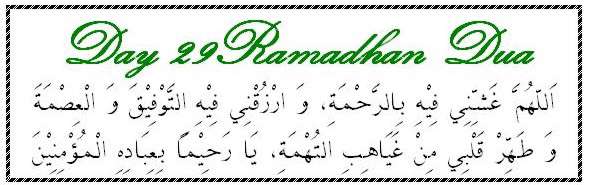 Day 29 Ramadhan Dua
اَللّهُمَّ غَشِّنِي فِيْهِ بِالرَّحْمَةِ، وَ ارْزُقْنِي فِيْهِ التَّوْفِيْقَ وَ الْعِصْمَةَ
وَ طَهِّرْ قَلْبِي مِنْ غَيَاهِبِ التُهْمَةِ، يَا رَحِيْماً بِعِبَادِهِ الْمُؤْمِنِيْنَ